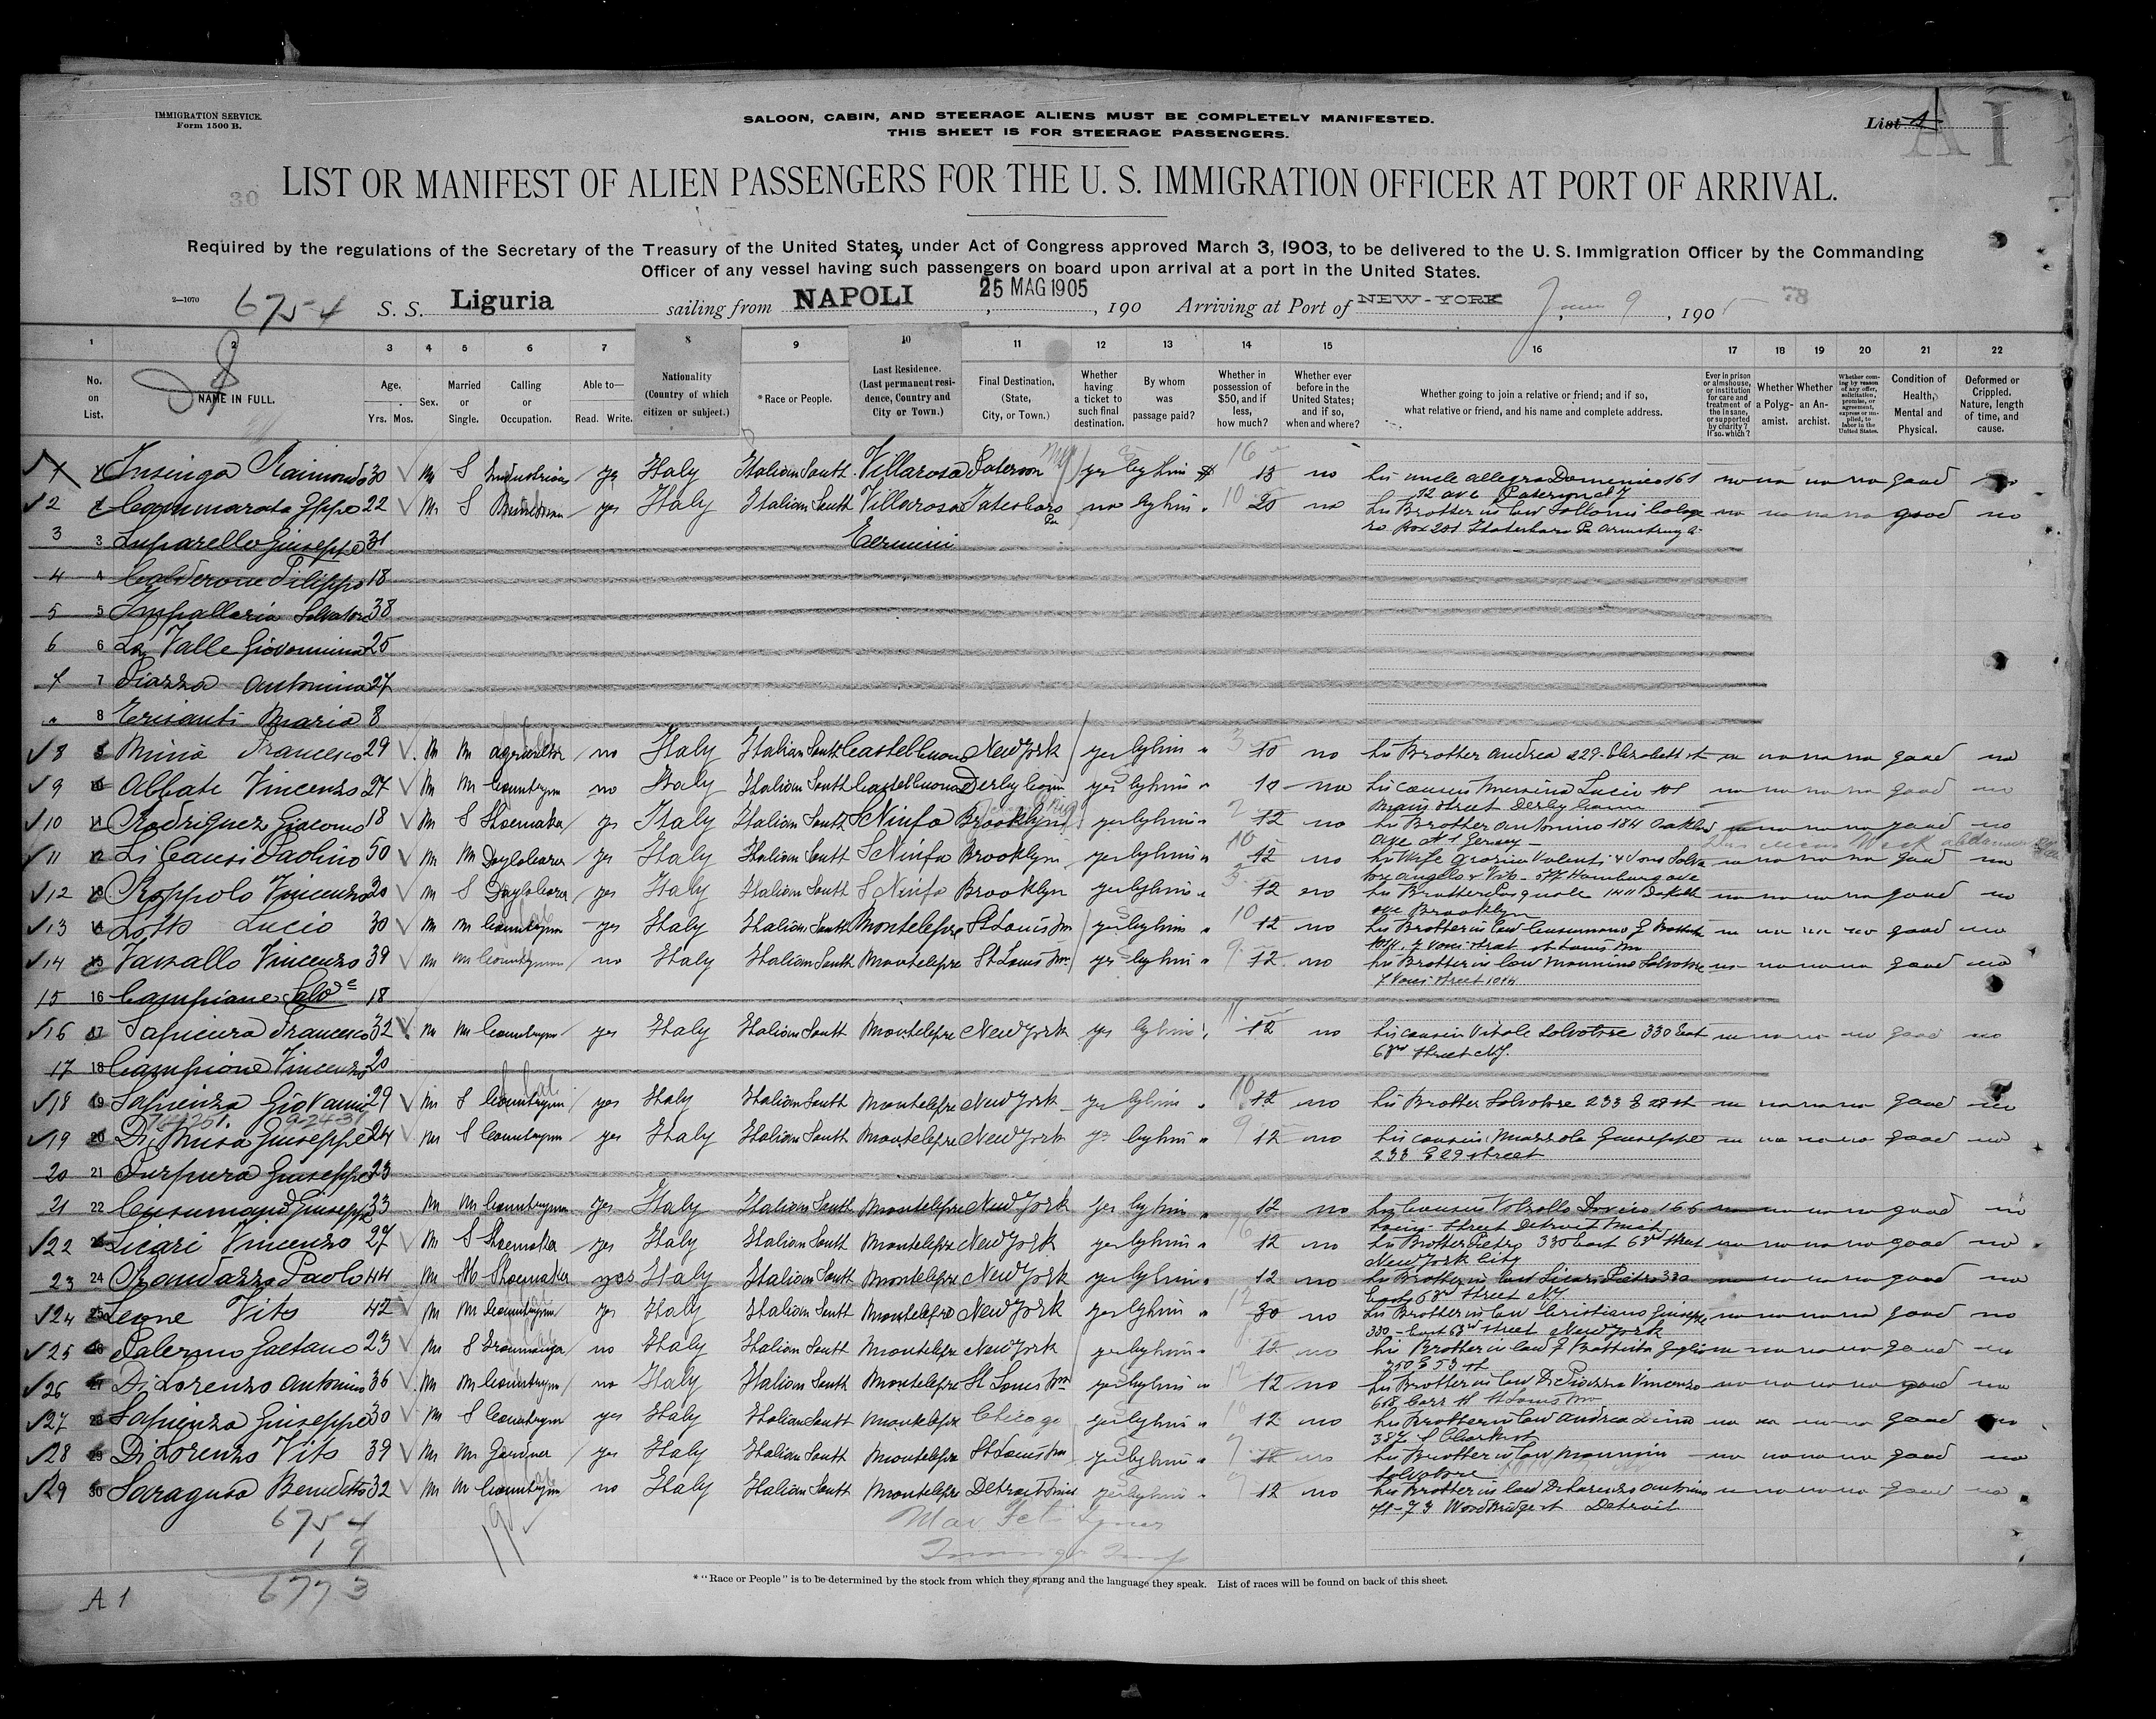 IMMIGRATION SERVICE.
Form 1500 B.
SALOON, CABIN, AND STEERAGE ALIENS MUST BE COMPLETELY MANIFESTED.
THIS SHEET IS FOR STEERAGE PASSENGERS.
List
A I
30
LIST OR MANIFEST OF ALIEN PASSENGERS FOR THE U. S. IMMIGRATION OFFICER AT PORT OF ARRIVAL.
Required by the regulations of the Secretary of the Treasury of the United States, under Act of Congress approved March 3, 1903, to be delivered to the U. S. Immigration Officer by the Commanding
Officer of any vessel having such passengers on board upon arrival at a port in the United States.
2—1070 6754 S. S. Liguria sailing from NAPOLI 25 MAG 1905, 190 Arriving at Port of NEW-YORK June 9, 1905 78
1 2 3 4 5 6 7 8 9 10 11 12 13 14 15 16 17 18 19 20 21 22
No. on List.
NAME IN FULL.
Age. Yrs. Mos.
Sex.
Married or Single.
Calling or Occupation.
Able to— Read. Write.
Nationality (Country of which citizen or subject.)
*Race or People.
Last Residence. (Last permanent residence, Country and City or Town.)
Final Destination, (State, City, or Town.)
Whether having a ticket to such final destination.
By whom was passage paid?
Whether in possession of $50, and if less, how much?
Whether ever before in the United States; and if so, when and where?
Whether going to join a relative or friend; and if so, what relative or friend, and his name and complete address.
Ever in prison or almshouse, or institution for care and treatment of the insane, or supported by charity? If so, which?
Whether a Polygamist.
Whether an Anarchist.
Whether coming by reason of any offer, solicitation, promise, or agreement, express or implied, to labor in the United States.
Condition of Health, Mental and Physical.
Deformed or Crippled. Nature, length of time, and cause.
1 Insinga Raimondo 30 m S yes Italy Italian South Villarosa Paterson yes by him $ 13 no his uncle Allegra Domenico 161
12 ave Paterson N J no no no no good no
2 Cammarata Gppe 22 m S yes Italy Italian South Villarosa Pa no by him 20 no his Brother in law Cologe
ro Box 201 Pa Armstrong no no no no good no
3 3 Luparello Giuseppe 31 Termini
4 4 Calderone Filippo 18
5 5 Impallaria Salvatore 38
6 6 La Valle Giovannina 25
7 7 Piazza Antonina 27
" 8 Trisanti Maria 8
8 Minà Francesco 29 m m no Italy Italian South Castelbuono New York yes by him " 10 no his Brother Andrea 229 Elizabeth st no no no no good no
9 Abbate Vincenzo 27 m m Countrym no Italy Italian South Castelbuono Derby Conn yes by him " 10 no his cousin Messina Lucio 101
Main street Derby Conn no no no no good no
10 Rodriguez Giacomo 18 m S Shoemaker yes Italy Italian South S Ninfa Brooklyn yes by him " 12 no his Brother Antonino 184 Oakland
ave N Jersey no no no no good no
11 Li Causi Paolino 50 m m Daylaborer yes Italy Italian South S Ninfa Brooklyn yes by him " 12 no his Wife Grazia Valenti & sons Salva
tore Angelo & Vito 577 Hamburg ave no no no no good no
12 Roppolo Vincenzo 20 m S Daylaborer yes Italy Italian South S Ninfa Brooklyn yes by him " 12 no his Brother Pasquale 1411 Dekalb
ave Brooklyn no no no no good no
13 Lotto Lucio 30 m m Countrym yes Italy Italian South Montelepre St Louis Mo yes by him " 12 no his Brother in law Cusumano G Battista
street St Louis Mo no no no no good no
14 Vassallo Vincenzo 39 m m Countryman no Italy Italian South Montelepre St Louis Mo yes by him " 12 no his Brother in law Mannino Salvatore
street no no no no good no
15 16 Campione Salve 18
16 Sapienza Francesco 32 m m Countrym yes Italy Italian South Montelepre New York yes by him " 12 no his cousin Vitale Salvatore 330 East
63rd street N.Y. no no no no good no
17 18 Campione Vincenzo 20
18 Sapienza Giovanni 29 m S Countrym yes Italy Italian South Montelepre New York yes by him " 12 no his Brother Salvatore 233 E 29 st no no no no good no
19 Di Misa Giuseppe 24 m S Countrym yes Italy Italian South Montelepre New York yes by him " 12 no his cousin Mazzola Giuseppe
233 E 29 street no no no no good no
20 21 Purpura Giuseppe 23
21 22 Cusumano Giuseppe 33 m m Countrym yes Italy Italian South Montelepre New York yes by him " 12 no his Cousin 166
street Detroit Mich no no no no good no
22 Licari Vincenzo 27 m S Shoemaker yes Italy Italian South Montelepre New York yes by him " 12 no his Brother Pietro 330 East 63rd street
New York City no no no no good no
23 24 Randazzo Paolo 44 m M Shoemaker yes Italy Italian South Montelepre New York yes by him " 12 no his Brother in law Licari Pietro 330
East 63rd street N.Y. no no no no good no
24 Leone Vito 42 m m Countrym yes Italy Italian South Montelepre New York yes by him " 30 no his Brother in law Cristiano Giuseppe
330 East 63rd street New York no no no no good no
25 Palermo Gaetano 23 m S no Italy Italian South Montelepre New York yes by him " 12 no his Brother in law G Battista
350 E 53 st no no no no good no
26 Di Lorenzo Antonino 36 m m Countrym no Italy Italian South Montelepre St Louis Mo yes by him " 12 no his Brother in law Di Piazza Vincenzo
618 Carr st St Louis Mo no no no no good no
27 Sapienza Giuseppe 30 m S Countrym yes Italy Italian South Montelepre Chicago yes by him " 12 no his Brother in law Andrea
387 S Clark st no no no no good no
28 Di Lorenzo Vito 39 m m Gardner yes Italy Italian South Montelepre St Louis Mo yes by him " 12 no his Brother in law Mannino
Salvatore no no no no good no
29 Saraguso Benedetto 32 m m Countrym no Italy Italian South Montelepre Detroit Mich yes by him " 12 no his Brother in law Di Lorenzo Antonino
71-73 Woodbridge st Detroit no no no no good no
6754
19
6773
A 1
* "Race or People" is to be determined by the stock from which they sprang and the language they speak. List of races will be found on back of this sheet.